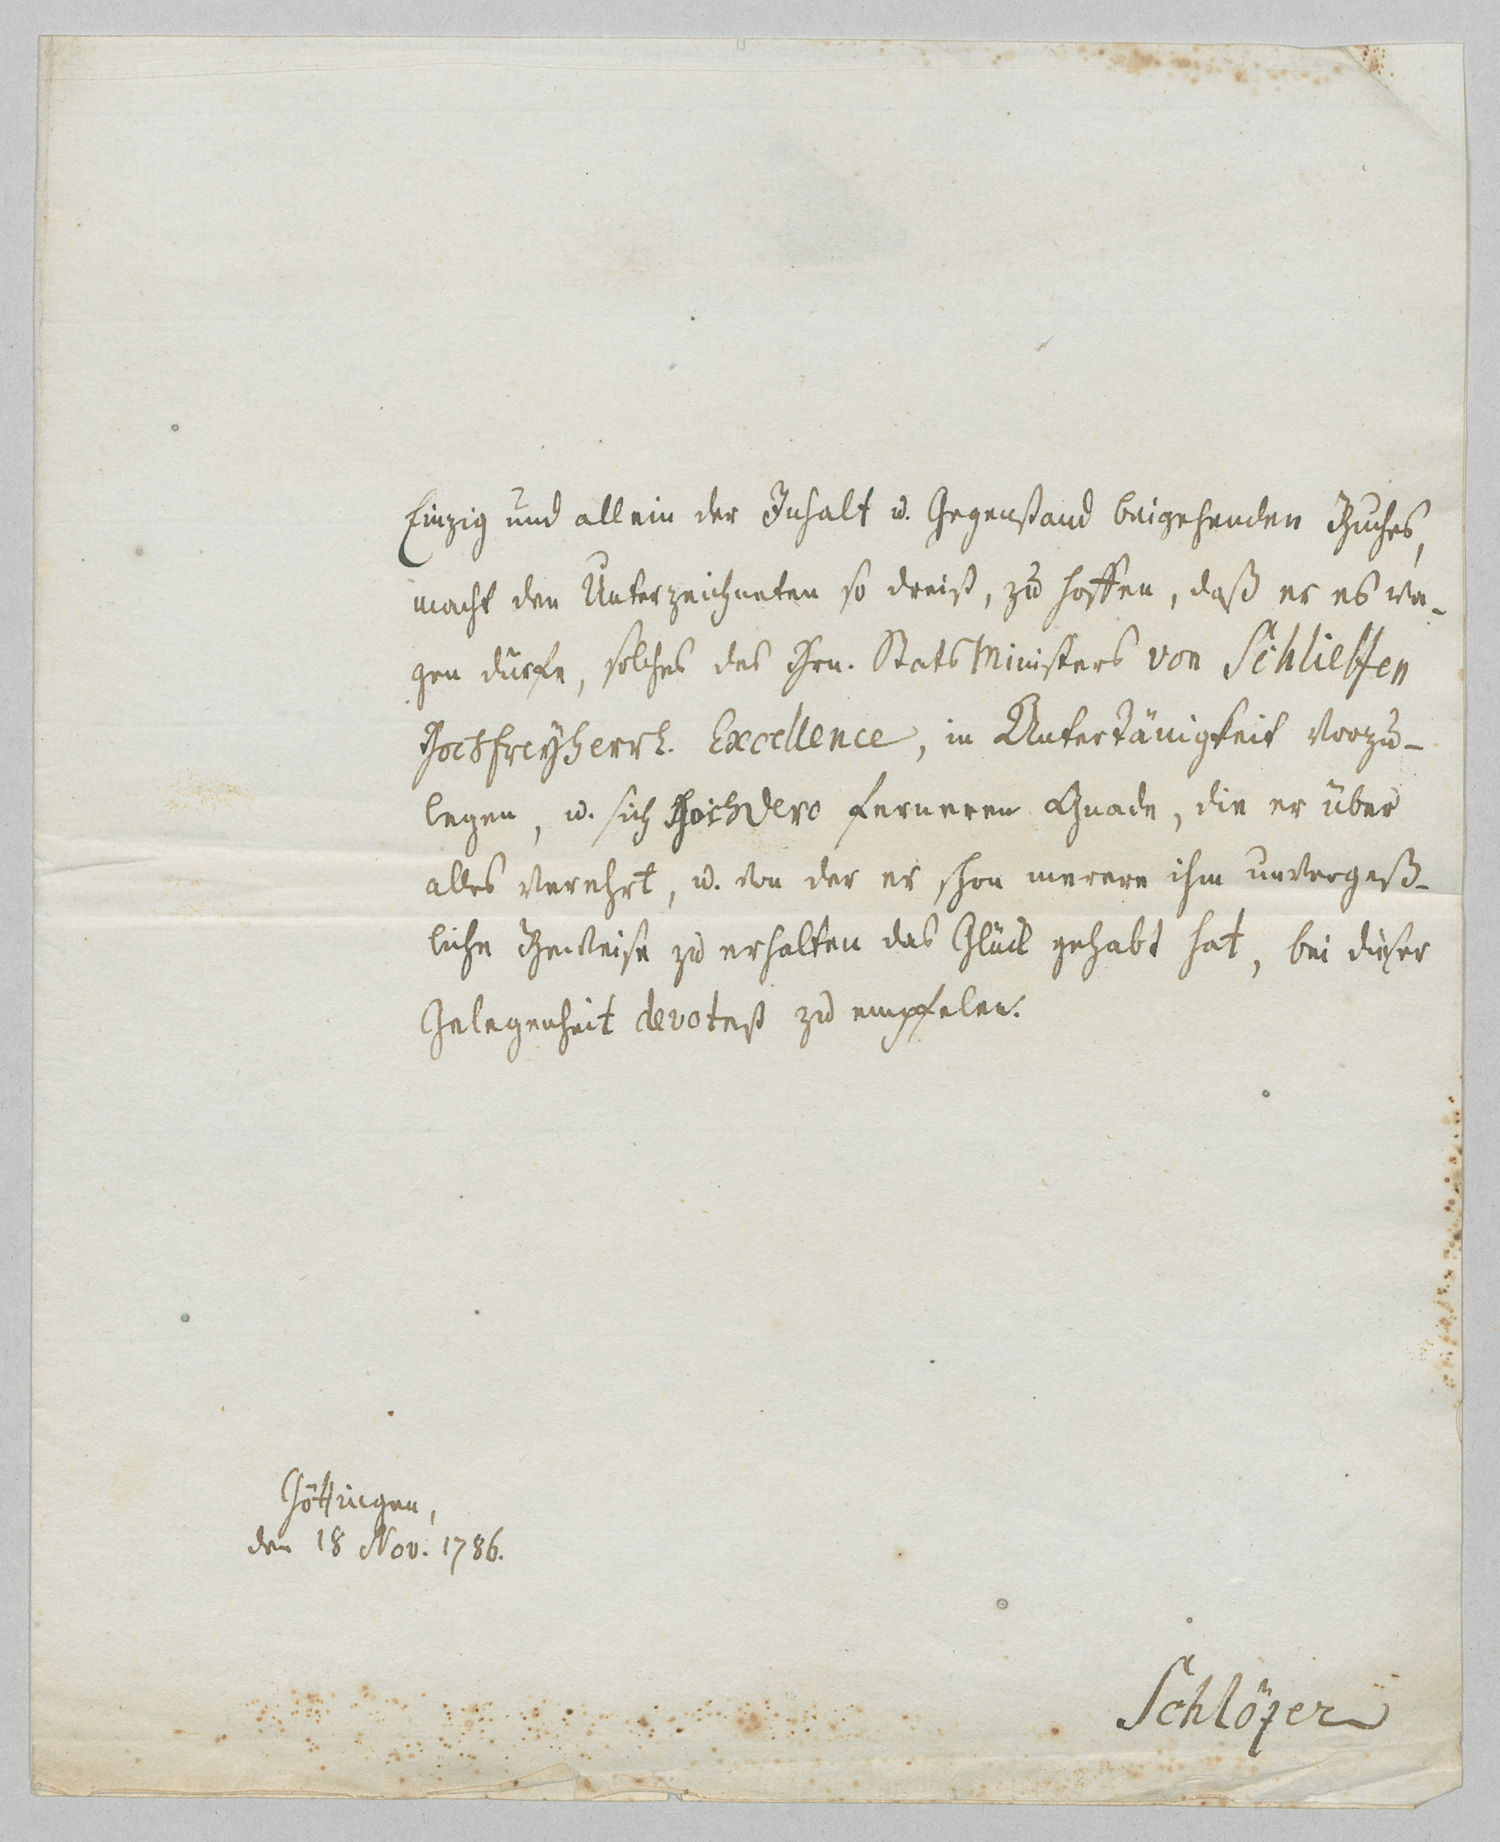 Einzig und allein der Inhalt u. Gegenstand beigehenden Buches,
macht den Unterzeichneten so dreist, zu hoffen, daß er es wa-
gen dürfe, solches des Hrn. StatsMinisters von Schlieffen
Hochfreyherrl. Excellence, in Untertänigkeit vorzu-
legen, u. sich Hochdero ferneren Gnade, die er über
alles verehrt, u. von der er schon merere ihm unvergeß-
liche Beweise zu erhalten das Glück gehabt hat, bei dieser
Gelegenheit devotest zu empfelen.
Göttingen,
den 18 Nov. 1786.
Schlözer